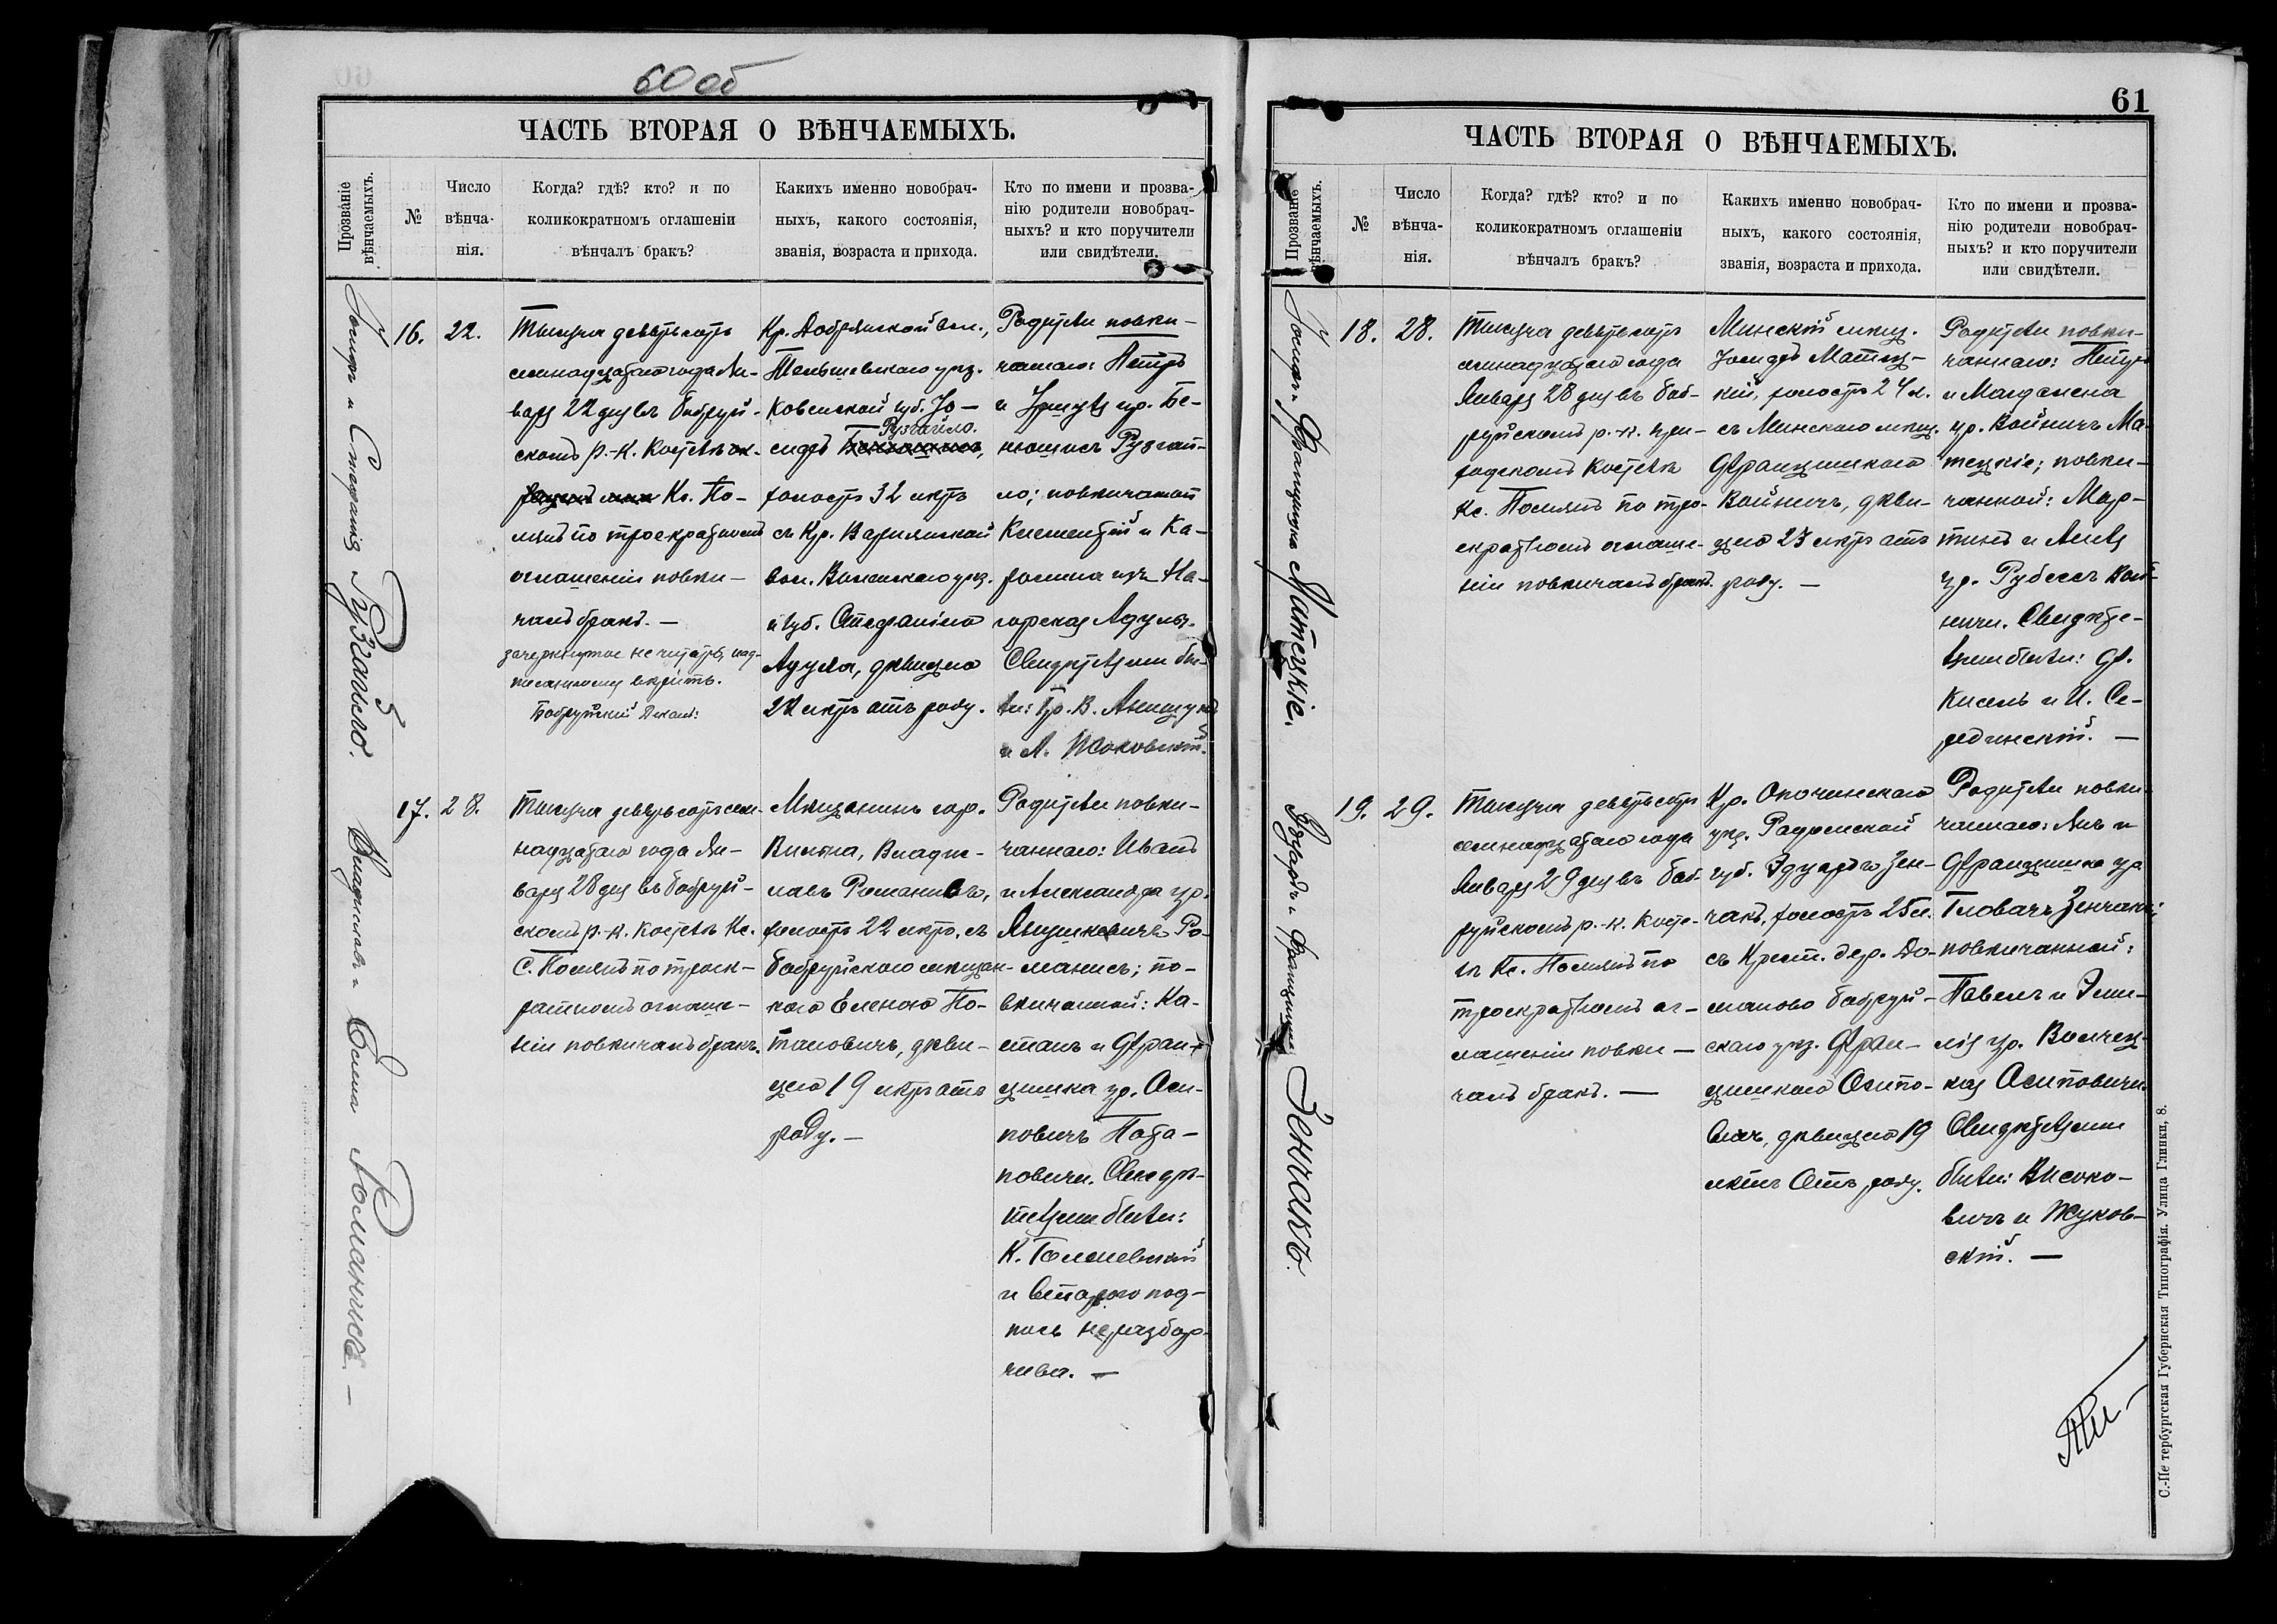 60 об
ЧАСТЬ ВТОРАЯ О ВѢНЧАЕМЫХЪ.
Прозваніе
вѣнчаемыхъ.
№
Число
вѣнча-
нія.
Когда? гдѣ? кто? и по
коликократномъ оглашеніи
вѣнчалъ бракъ?
Какихъ именно новобрач-
ныхъ, какого состоянія,
званія, возраста и прихода.
Кто по имени и прозва-
нію родители новобрач-
ныхъ? и кто поручители
или свидѣтели.
Іосифъ и Стефанія Рузгайло.
16.
22.
Тысяча девятьсотъ
семнадцатаго года Ян-
варя 22 дня въ Бобруй-
скомъ р.-к. костелѣ
Кс. По-
мянъ по троекратномъ
оглашеніи повѣн-
чалъ бракъ. —
зачеркнутое не читать, над-
писанному вѣрить.
Бобруйскій Деканъ:
Кр. Добрянской вол.,
Тельшевскаго уѣз.
Ковенской губ. Іо-
Рузгайло.
сифъ
холостъ 32 лѣтъ
съ Кр. Варнянской
вол. Виленскаго уѣз.
и губ. Стефаніею
Адуля, дѣвицею
22 лѣтъ отъ роду.
Родители повѣн-
чаннаго: Петръ
и Уршуля ур. Бе-
нюшисъ Рузгай-
ло; повѣнчанной
Климентій и Ка-
ролина изъ На-
горская Адуль.
Свидѣтелями бы-
ли: Гр. В. Анищукъ
и А. Жоковскій.
Владиславъ и Елена Романисъ. —
17.
28.
Тысяча девятьсотъ сем-
надцатаго года Ян-
варя 28 дня въ Бобруй-
скомъ р.-к. костелѣ Кс.
С. Помянъ по троек-
ратномъ оглаше-
ніи повѣнчалъ бракъ.
Мѣщанинъ гор.
Вильна, Владис-
лавъ Романисъ,
холостъ 22 лѣтъ, съ
Бобруйскою мѣщан-
кою Еленою По-
таповичъ, дѣви-
цею 19 лѣтъ отъ
роду. —
Родители повѣн-
чаннаго: Иванъ
и Александра ур.
Янушкевичъ Ро-
манисъ; по-
вѣнчанной: Ка-
етанъ и Фран-
цишка ур. Оси-
повичъ Пота-
повичи. Свидѣ-
телями были:
К. Голошевскій
и второго под-
пись неразбор-
чива. —
61
ЧАСТЬ ВТОРАЯ О ВѢНЧАЕМЫХЪ.
Прозваніе
вѣнчаемыхъ.
№
Число
вѣнча-
нія.
Когда? гдѣ? кто? и по
коликократномъ оглашеніи
вѣнчалъ бракъ?
Какихъ именно новобрач-
ныхъ, какого состоянія,
званія, возраста и прихода.
Кто по имени и прозва-
нію родители новобрач-
ныхъ? и кто поручители
или свидѣтели.
Іосифъ и Францишка Матецкіе.
18.
28.
Тысяча девятьсотъ
семнадцатаго года
Января 28 дня въ Боб-
руйскомъ р.-к. при-
ходскомъ костелѣ
Кс. Помянъ по трое-
кратномъ оглаше-
ніи повѣнчалъ бракъ.
Минскій мѣщ.
Іосифъ Матец-
кій, холостъ 24 л.
съ Минскою мѣщ.
Францишкою
Войничъ, дѣви-
цею 25 лѣтъ отъ
роду. —
Родители повѣн-
чаннаго: Петръ
и Магдалена
ур. Войничъ Ма-
тецкіе; повѣн-
чанной: Мар-
тинъ и Анеля
ур. Рубель Вой-
ничи. Свидѣте-
лями были: Ф.
Кисель и И. Се-
рединскій. —
Эдуардъ и Францишка Зенчакъ.
19.
29.
Тысяча девятьсотъ
семнадцатаго года
Января 29 дня въ Боб-
руйскомъ р.-к. косте-
лѣ Кс. Помянъ по
троекратномъ ог-
лашеніи повѣн-
чалъ бракъ. —
Кр. Опочинскаго
уѣз. Радомской
губ. Эдуардъ Зен-
чакъ, холостъ 25 л.
съ Крест. дер. До-
маново Бобруй-
скаго уѣз. Фран-
цишкою Осипо-
вичъ, дѣвицею 19
лѣтъ отъ роду.
Родители повѣн-
чаннаго: Янъ и
Францишка ур.
Гловачъ Зенчакъ;
повѣнчанной:
Павелъ и Эми-
лія ур. Волчец-
кая Осиповичи.
Свидѣтелями
были: Высоко-
вичъ и Жуков-
скій. —
С.-Петербургская Губернская Типографія. Улица Глинки, 8.